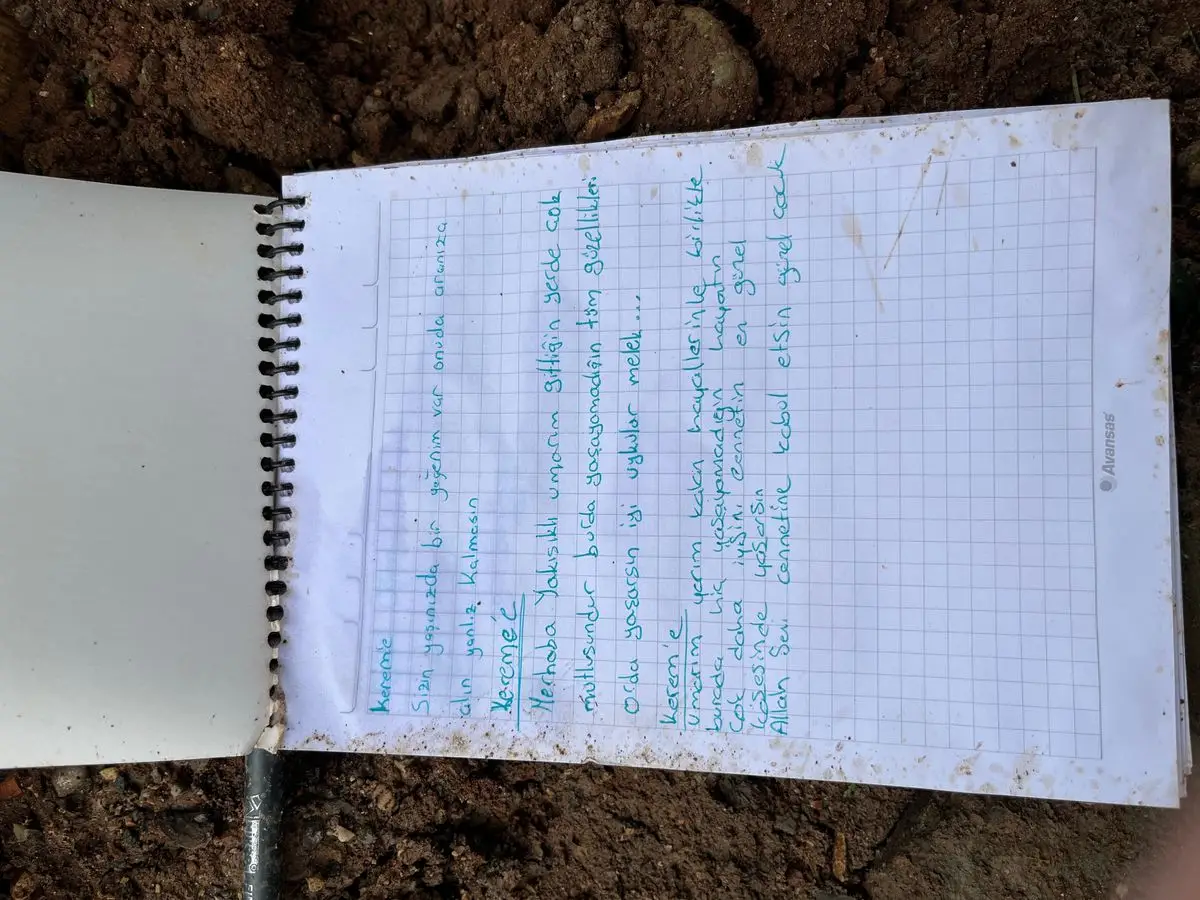 Kerem'e
Sizin yaşınızda bir yeğenim var onuda aranıza
alın yanlız kalmasın
Kereme'e
Merhaba Yakışıklı umarım gittiğin yerde çok
mutlusundur burda yaşayamadığın tüm güzellikleri
orda yaşarsın iyi uykular melek...
Kerem'e
Umarım yarım kalan hayallerinle birlikte
burada hiç yaşayamadığın hayatın
çok daha iyisini cennetin en güzel
köşesinde yaşarsın
Allah Seni cennetine kabul etsin güzel çocuk
Avansas